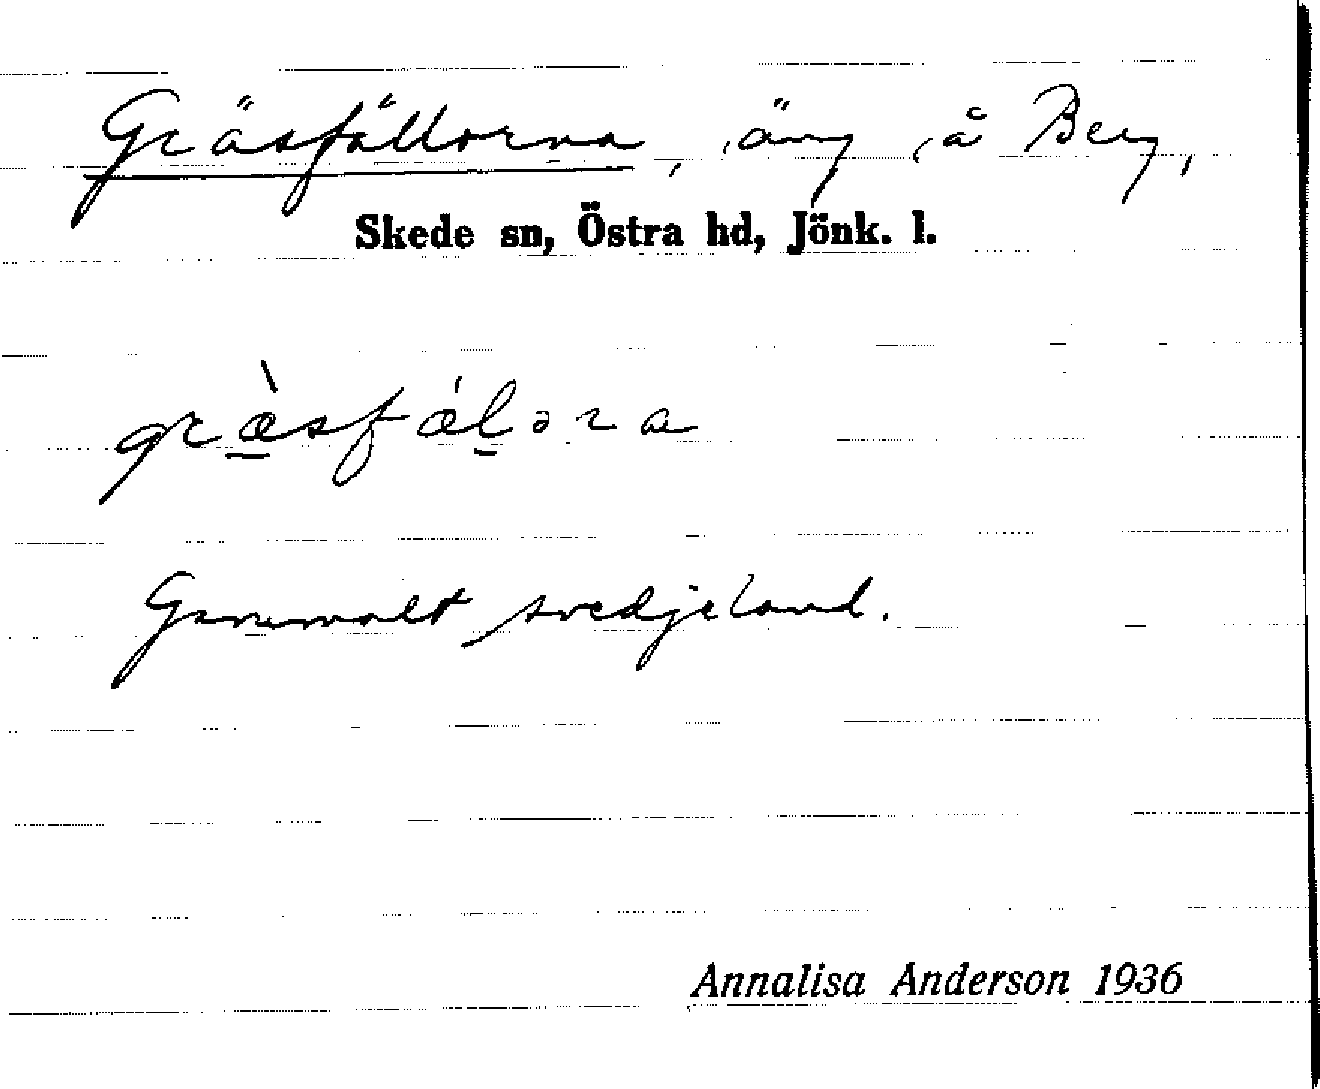 Gräsfällorna, äng å Berg,
Skede sn, Östra hd, Jönk. l.
græ̀sfǽlɔra
Gammalt svedjeland.
Annalisa Anderson 1936